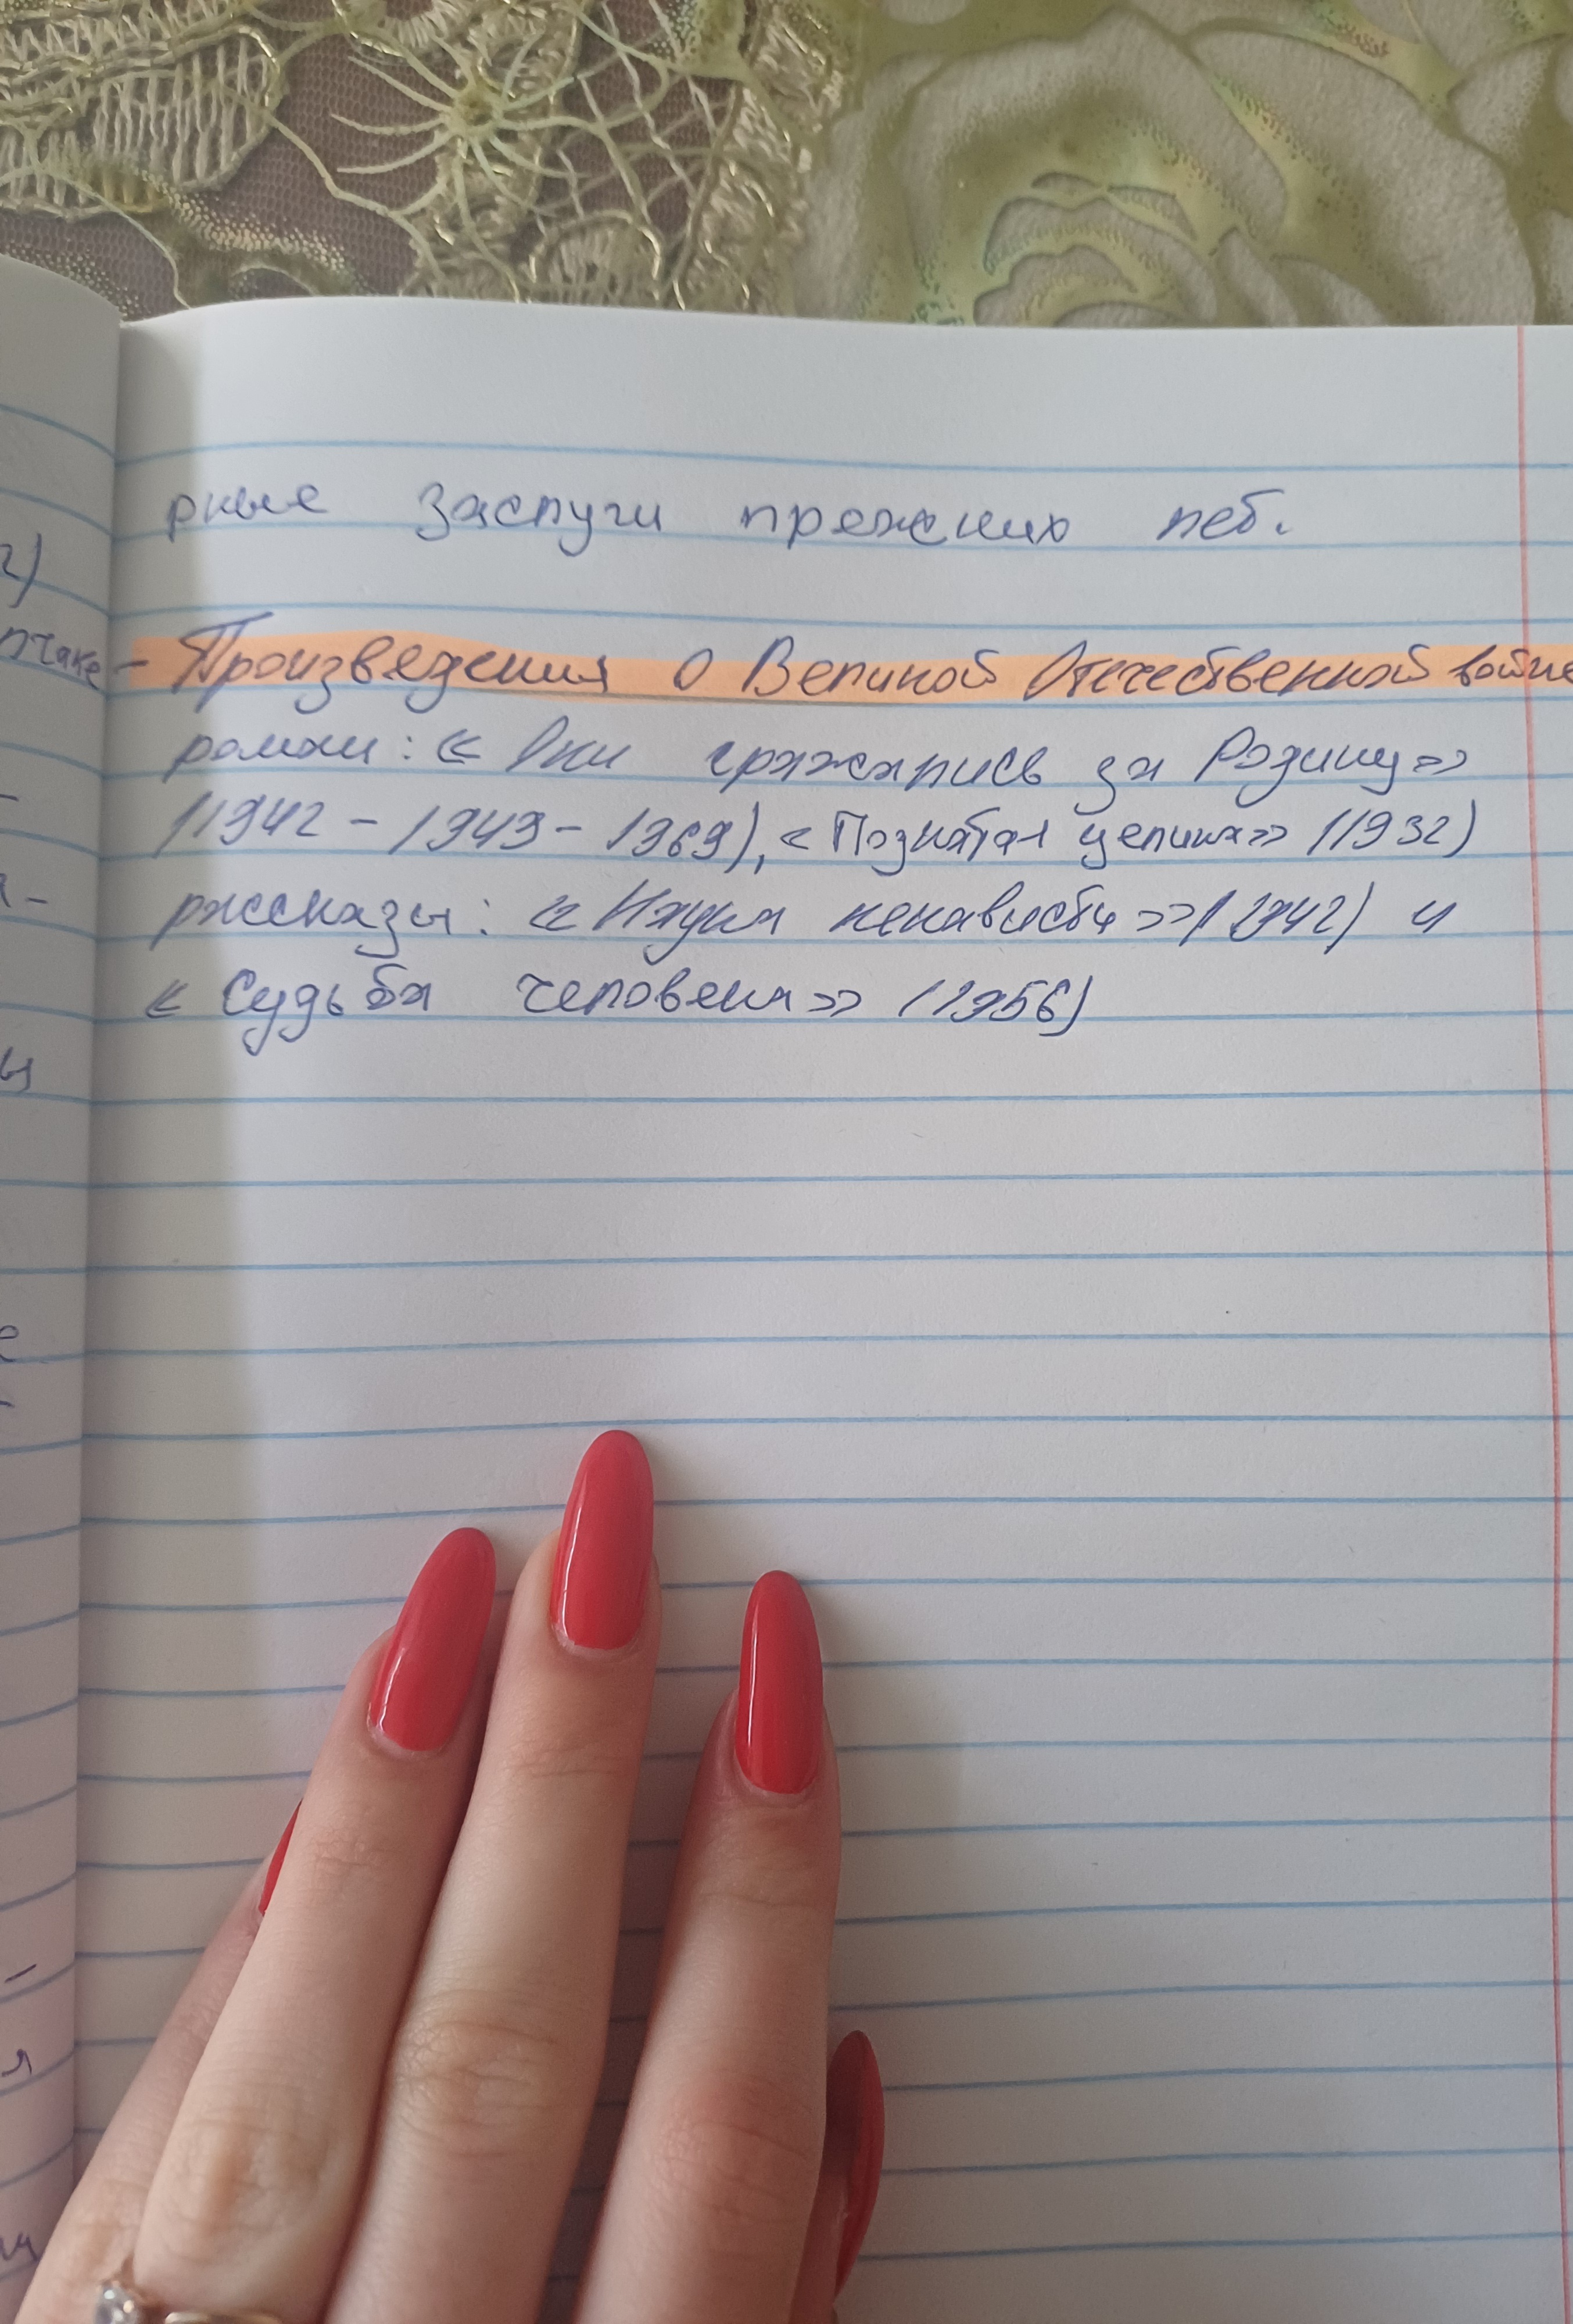 рные заслуги прежних лет.
2)
- Произведения о Великой Отечественной войне
романы: « Они сражались за Родину»
(1942 - 1949 - 1969), « Поднятая целина» (1932)
рассказы: « Наука ненависти» (1942) и
« Судьба человека» (1956)